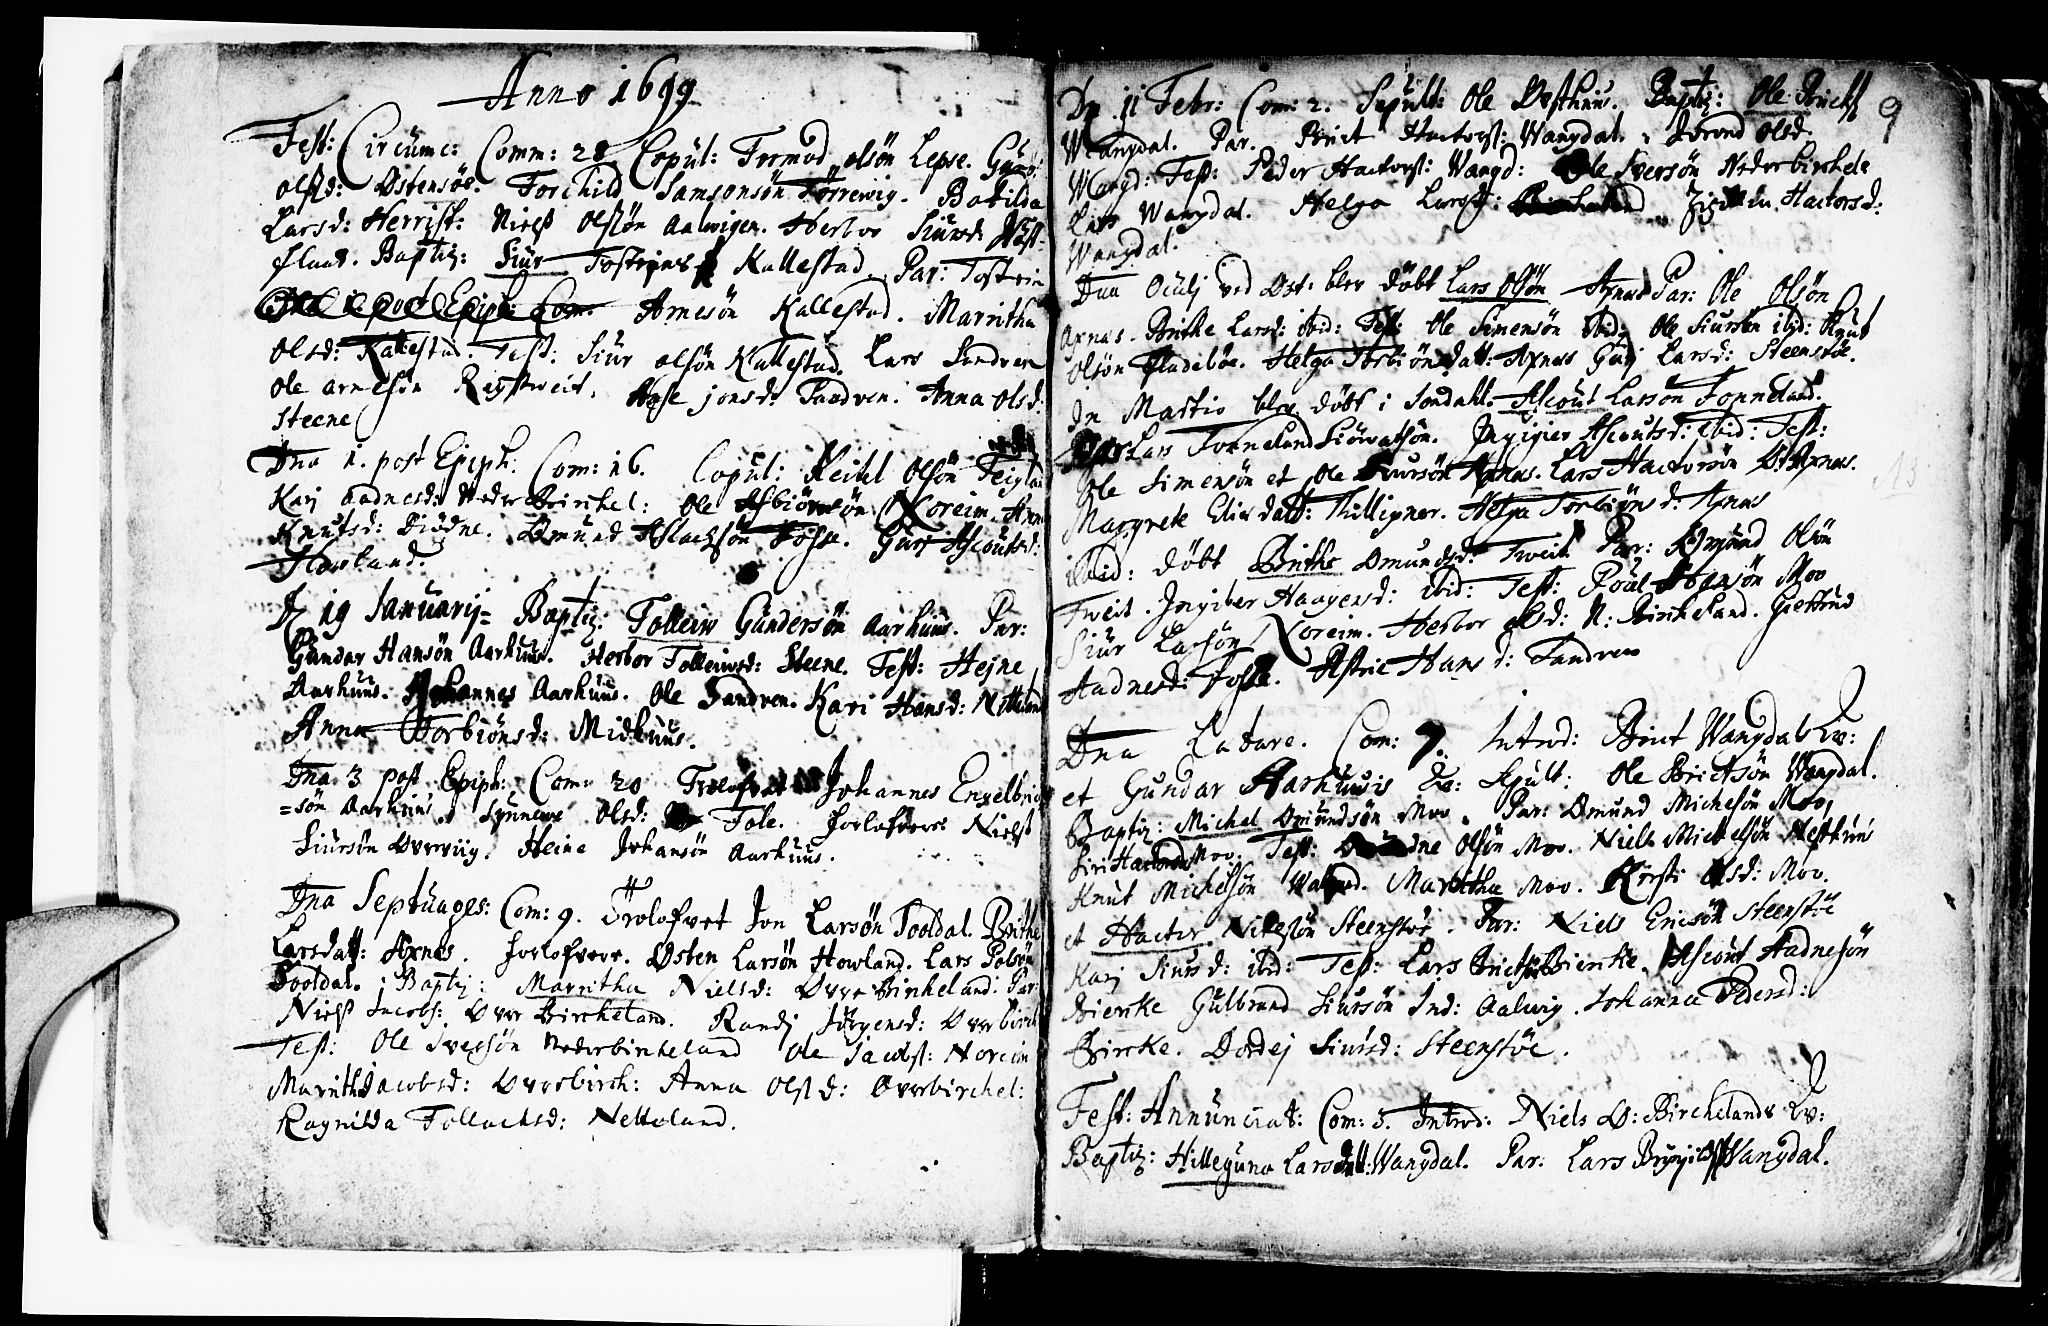 Anno 1699
Fest: Circumc: Comm: 28 Copul: Tormod olsön Lepse. Gure
olsd: Ostensöe. Torchild Samsonsön Törrewig. Batilda
Larsd: Herrist: Niels Olsön Aalwigen. Herbor Siursd: West-
flaat. Baptiz: Siur Tosteens Kallestad. Par: Tostein
Arnesön Kallestad. Marritha
Olsd: Kallestad. Test: Siur olsön Kallestad. Lars Sandven
Ole arnesön Rystweit. Aase jonsd: Sandven. Anna Olsd:
Steene
Dna 1. post Epiph. Com: 16. Copul: Keitel Olsön Teigla
Karj Aadnesd: Neder Birchel: Ole Asbiörnsön Noreim. Ann
Knutsd: Diödne. Omund Aslachsön Fosse. Gurj Ascoutsd:
Howland.
D 19 Januarij Baptiz: Tolleiw Gundersön Aarhuus. Par:
Gundar Hansön Aarhuus. Herbor Tolleiwsd: Steene. Test: Hejne
Aarhuus. Johannes Aarhuus. Ole Sandven. Kari Hansd: Netteland
Anna Torbiönsd: Midhuus.
Dna 3 post Epiph: Com: 20 Trolofvet Johannes Engelbric
=sön Aarhuus. Synnewe Olsd: Tole. Forlofvere Niels
Siursön Overviig. Heine Johansön Aarhuus.
Dna Septuages: Com: 9. Trolofvet Jon Larsön Sooldal. Brithe
Larsdatt: Axnes. Forlofvere. Østen Larsön Howland. Lars Polsön
Sooldal. Baptiz: Marritha Nielsd: Ovre Birkeland. Par:
Niels Jacobs: Over Birckeland. Randj Jörgensd: Overbirch
Test: Ole Iversön Nederbirkeland Ole Jacobs: Noreim
Maritha Jacobsd: Overbirch: Anna Olsd: Overbirchel:
Ragnilda Tollachsd: Netteland.
9
Dn 11 Febr: Com: 2. Sepult: Ole Østhuus. Baptiz: Ole Bricts
Wangdal. Par. Brict Hactors: Wangdal. Jorond Olsd.
Wangd: Test: Peder Hactors: Wangd: Ole Iversön Nederbirkele
Lars Wangdal. Helga Larsd: Hactorsd:
Wangdal.
Dna Oculj ved Øst: blev döbt Lars Olsön Axnes Par: Ole Olsön
Axnes. Brithe Larsd: ibid: Test: Ole Simensön ibid: Ole Siursön ibid: Knut
Olsön Fladeböe. Helga Torbiönsdatt: Axnes Gurj Larsd: Steenstöe.
In Martio blev döbt i Sondahl. Ascout Larsön Fonneland.
Lars Fonneland Siöwatsön. Jngigier Ascoutsd: ibid: Test:
Ole Simensön et Ole Siursön Axnes. Lars Hactorsön Axnes.
Margrete Elisdatt: Phillipner. Helga Torbiönsd: Axnes
ibid: döbt Brithe Omundsd: Tweit Par: Omund Olsön
Tweit. Jngiber Haagensd: ibid: Test: Poul Moo
Siur Larsön Noreim. Herbor Olsd: N: Birkeland. Giertrud
Aadnesd: Fosse. Astric Hansd: Sandven
Dna Lætare. Com: 7. Introd: Brict Wangdals Qv:
et Gundar Aarhuuses Qv: Sepult: Ole Brictsön Wangdal.
Baptiz: Michel Omundsön Moo. Par: Omund Michelsön Moo,
Siri Hactorsd Moo. Test: Olsön Moo. Niels Michelsön Nesthuus
Knut Michelsön Maritha Moo. Kirsti Olsd: Moo.
et Hactor Nielsön Steenstöe. Par: Niels Ericsön Steenstöe
Karj Siursd: ibid: Test: Lars Brictsön Biercke. Ascout Aadnesön
Biercke Gulbrand Siursön Ind: Aalwig. Johanna Pedersd:
Bircke. Dordej Siursd: Steenstöe.
Fest: Annunciat: Com: 5. Introd: Niels O: Birchelands Qv:
Baptiz: Hilleguna Larsdatt: Wangdal. Par: Lars Wangdal.